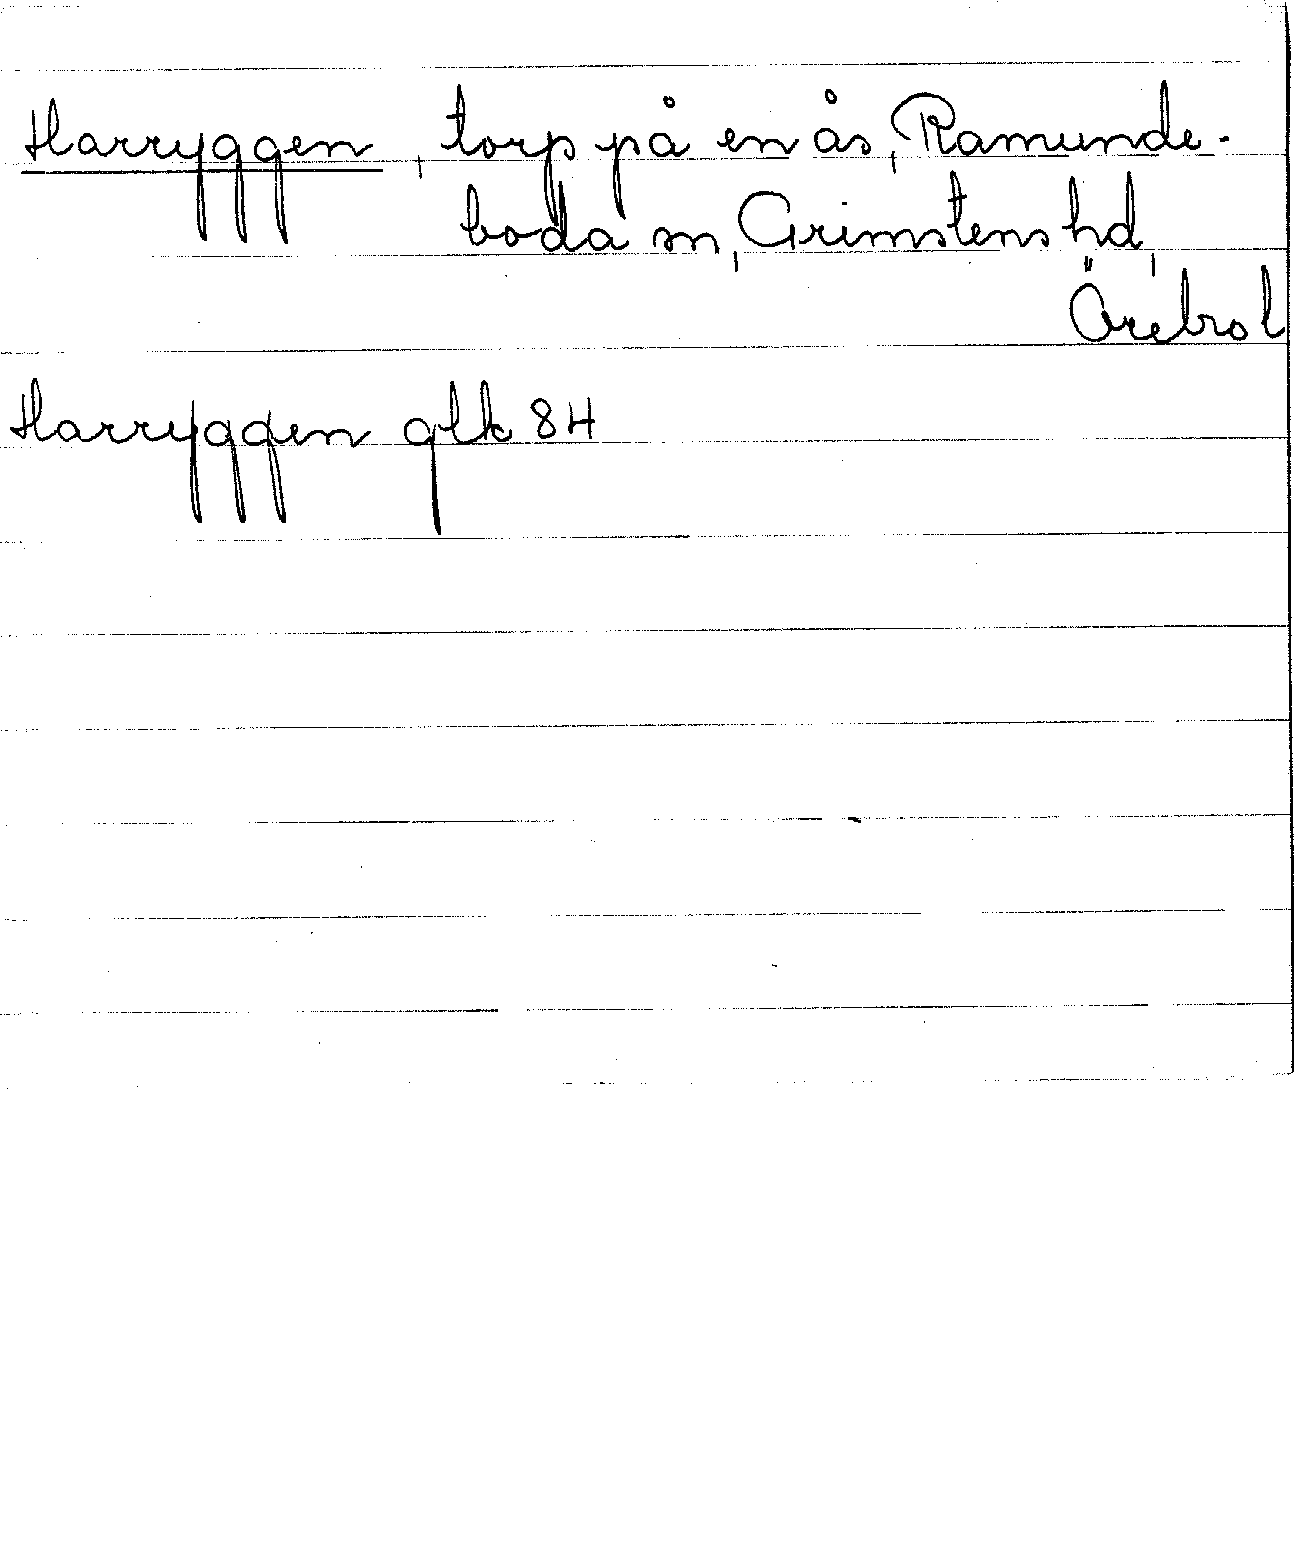 Harryggen, torp på en ås, Ramunde-
boda sn, Grimstens hd,
Örebro l
Harryggen glk 84